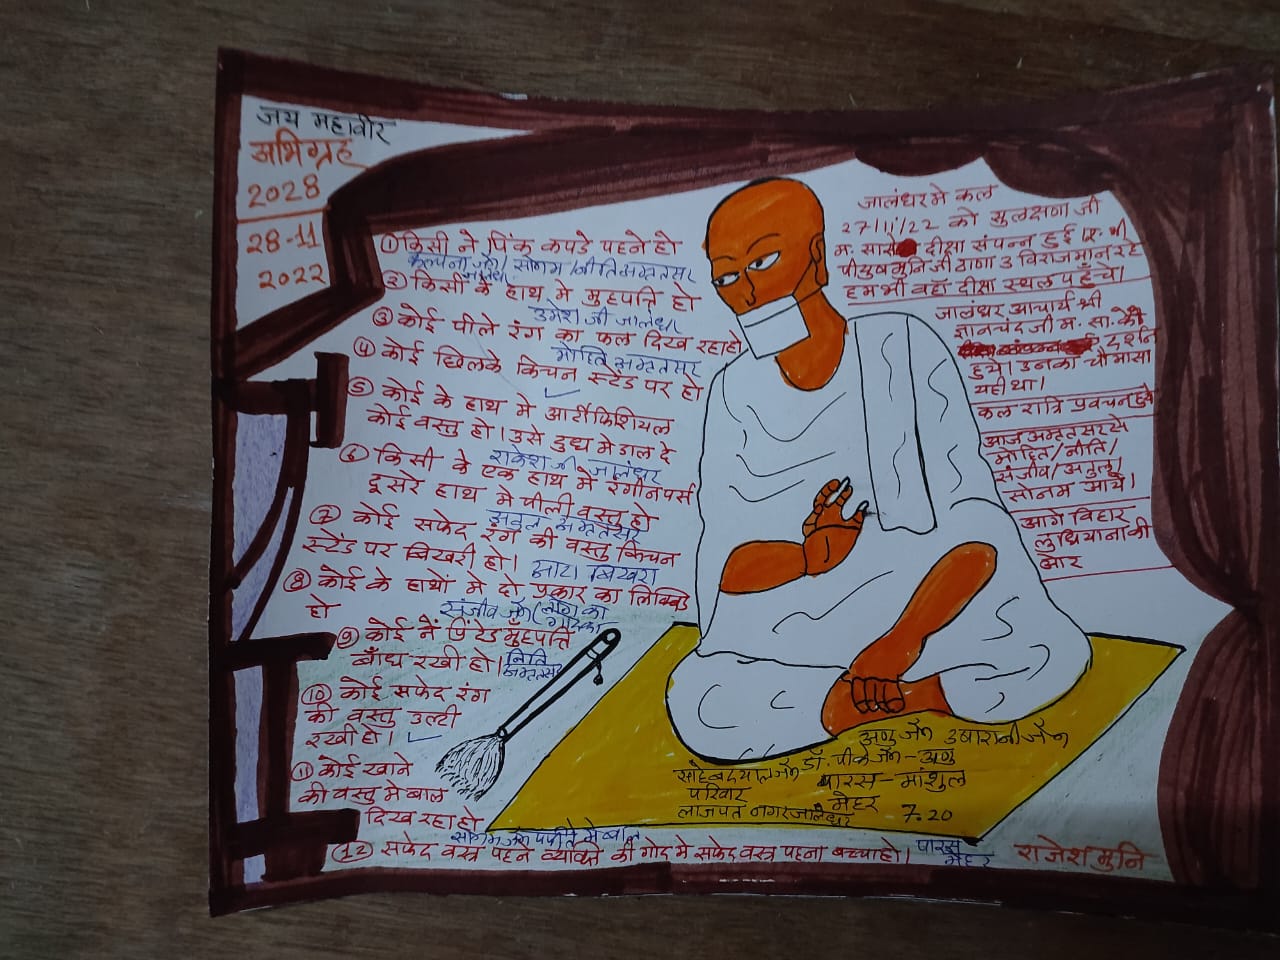 जय महावीर
अभिग्रह
2028
28-11
2022
① किसी ने पिंक कपडे पहने हो
कल्पना जैन / सोनम / नीति अमृतसर
जालंधर
② किसी के हाथ मे मुहपति हो
उमेश जी जालंधर
③ कोई पीले रंग का फल दिख रहा हो
मोहित अमृतसर
④ कोई छिलके किचन स्टेंड पर हो
⑤ कोई के हाथ मे आर्टीफिशियल
कोई वस्तु हो। उसे दुध मे डाल दे
राकेश जी जालंधर
⑥ किसी के एक हाथ में रंगीन पर्स
दूसरे हाथ मे पीली वस्तु हो
अतुल अमृतसर
⑦ कोई सफेद रंग की वस्तु किचन
स्टेंड पर बिखरी हो। आटा बिखरा
⑧ कोई के हाथों मे दो प्रकार का लिक्विड
हो
संजीव जैन (लौंग का
⑨ कोई नें प्रिंटेड मुँहपति
बाँध रखी हो। निति
अमृतसर
⑩ कोई सफेद रंग
की वस्तु उल्टी
रखी हो।
⑪ कोई खाने
की वस्तु मे बाल
दिख रहा हो
सोनम जैन पपीते मे बाल
(12) सफेद वस्त्र पहने व्यक्ति की गोद मे सफेद वस्त्र पहना बच्चा हो। पारस
मेहर
जालंधर मे कल
27/11/22 को सुलक्षणा जी
म. सा की दीक्षा संपन्न हुई प्र. श्री
पीयुष मुनि जी ठाणा 3 विराजमान रहे
हम भी वहाँ दीक्षा स्थल पहुँचे।
जालंधर आचार्य श्री
ज्ञानचंद जी म. सा. के
दर्शन
हुये। उनका चौमासा
यही था।
कल रात्रि प्रवचन हुये
आज अमृतसर से
मोहित / नीति /
संजीव / अतुल /
सोनम आये।
आगे विहार
लुधियाना की
ओर
अणु जैन उषारानी जैन
साहेबदयाल जैन डॉ. पीके जैन - अणु
परिवार पारस - मांशुल
मेहर
लाजपत नगर जालंधर 7.20
राजेश मुनि